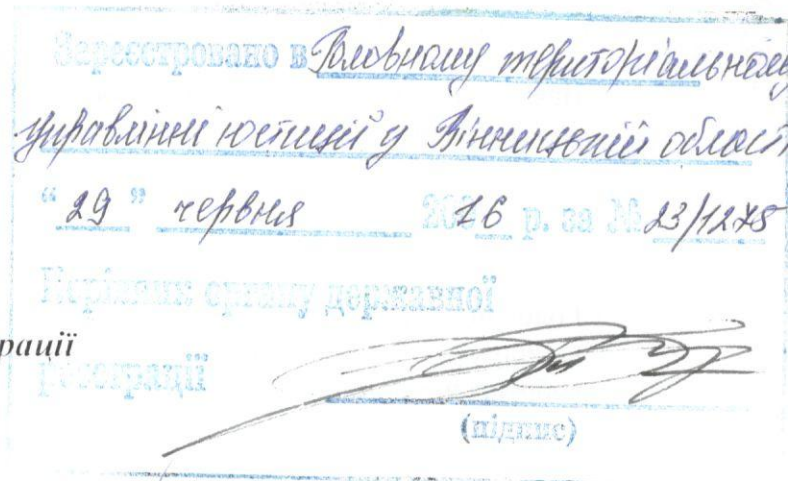 Зареєстровано в Головному територіальному
управлінні юстиції у Вінницькій області
“ 29 ” червня 2016 р. за № 23/1275
Керівник органу державної
рації
реєстрації
(підпис)